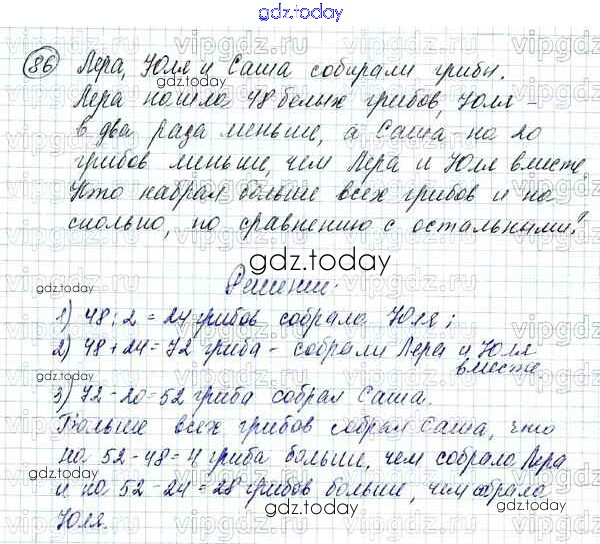 gdz.today
86 Лера, Юля и Саша собирали грибы.
gdz.today
Лера нашла 48 белых грибов, Юля -
в два раза меньше, а Саша - на 20
грибов меньше, чем Лера и Юля вместе.
Кто набрал больше всех грибов и на
сколько, по сравнению с остальными?
gdz.today
Решение:
gdz.today
1) 48:2=24 грибов собрала Юля;
2) 48+24=72 гриба - собрали Лера и Юля
вместе.
3) 72-20=52 гриба собрал Саша.
Больше всех грибов собрал Саша, что
на 52-48=4 гриба больше, чем собрала Лера
и на 52-24=28 грибов больше, чем собрала
Юля.
gdz.today